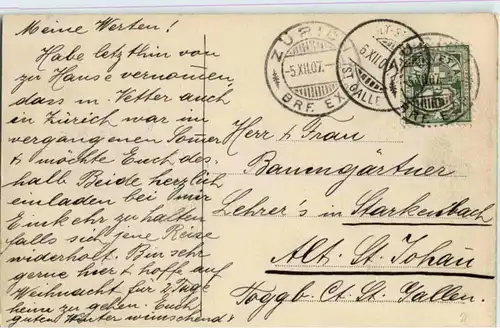 Meine Werten!
Habe letzthin von
zu Hause vernommen,
dass m. Vetter auch
in Zürich war im
vergangenen Somer
& möchte Euch des-
halb Beide herzlich
einladen bei mir
Einkehr zu halten
falls sich jene Reise
wiederholt. Bin sehr
gerne hier & hoffe auf
Weihnacht für 2 Tage
heim zu gehen. Euch
guten Winter wünschend
ZÜRICH
-5.XII.07.-
BRF. EX.
ALT-ST.
6.XII.07
(ST. GALLEN)
Herr & Frau
Baumgärtner
Lehrer's in Starkenbach
Alt. St. Johann
Toggb. Ct. St. Gallen.